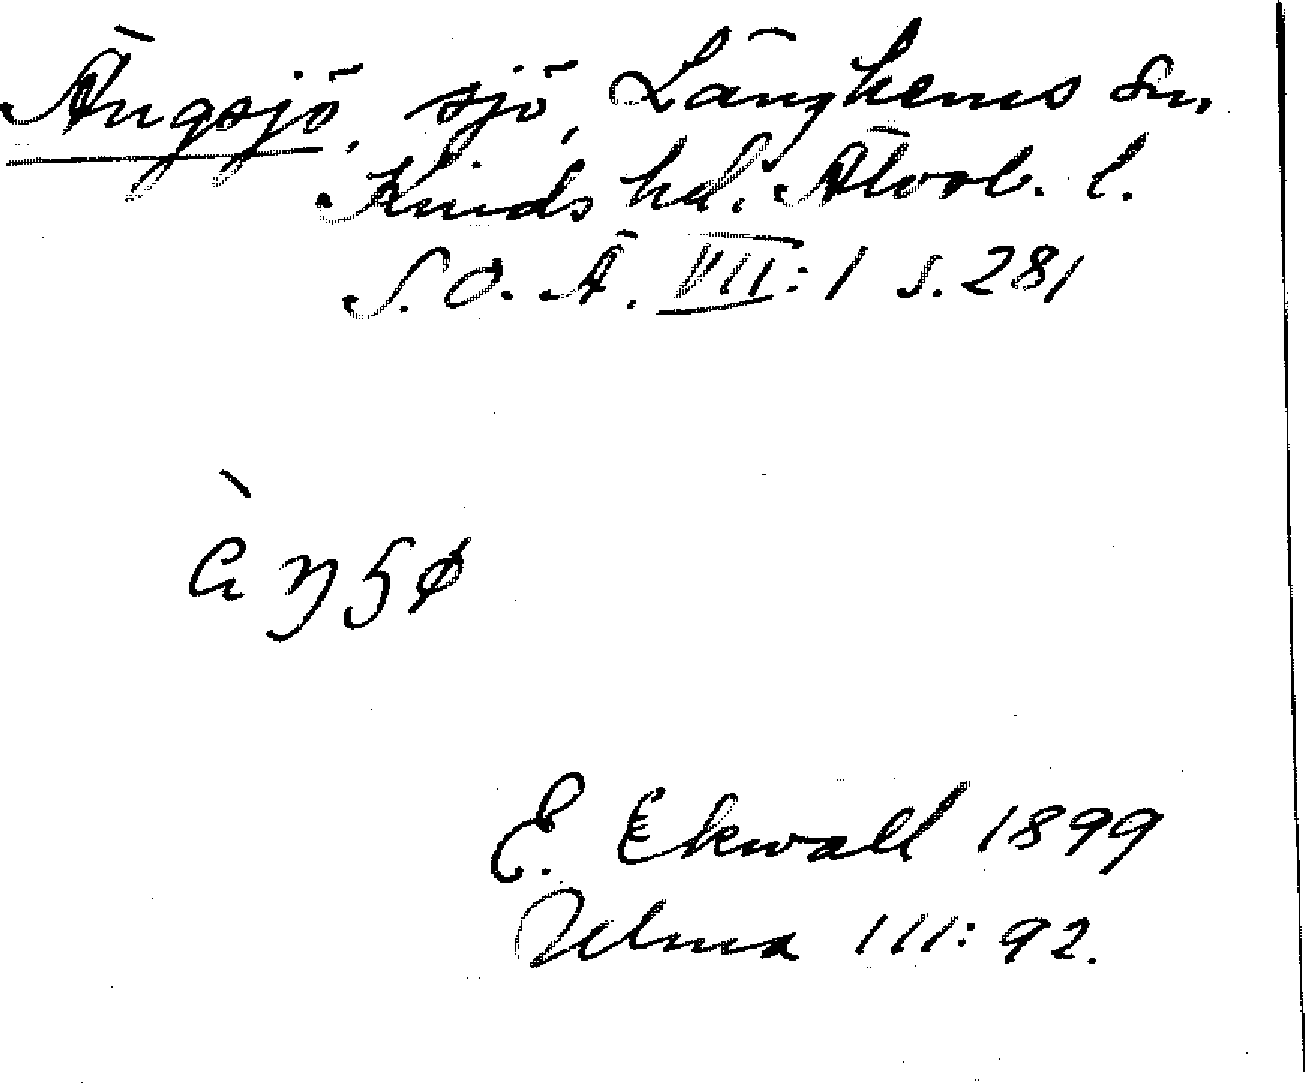 Ängsjö, sjö, Länghems sn,
Kinds hd. Älvsb. l.
S. O. Ä. VII: 1 s. 281
E. Ekwall 1899
Ulma 111: 92.